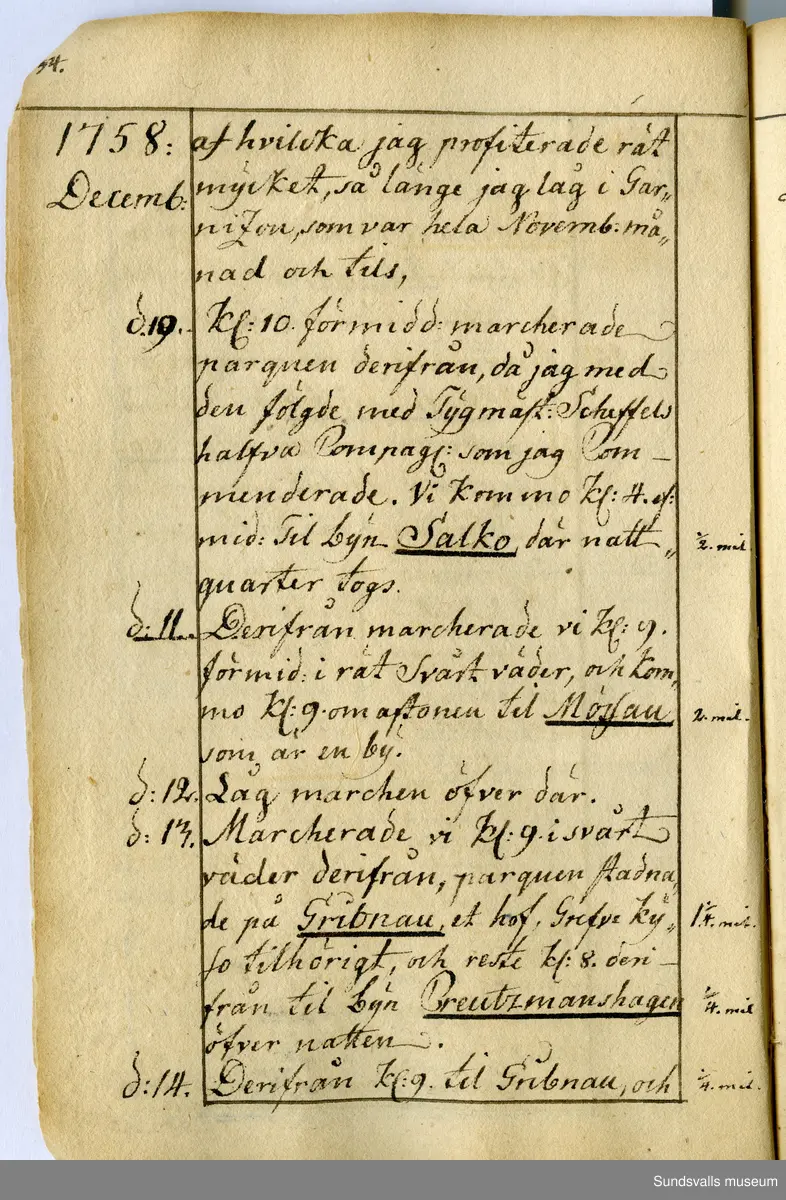 54.
1758: af hvilcka jag profiterade rät
Decemb: mycket, så länge jag låg i Gar„
nizon, som var hela Novemb: må„
nad och tils,
d. 19. Kl: 10. förmidd: marcherade
parquen derifrån, då jag med
den följde med Tygmäst: Scheffels
halfva Compag: som jag Com–
menderade. Vi kommo Kl: 4. ef:
mid: Til byn Salko, där natt„ 1/2. mil.
quarter togs.
d: 11. Derifrån marcherade vi Kl: 9.
förmid: i rät Svårt väder, och kom„
mo Kl: 9. om aftonen til Mössau 2. mil.
som är en by.
d: 12. Låg marchen öfver där.
d: 13. Marcherade vi Kl: 9. i svårt
väder derifrån, parquen stadna„
de på Gribnau, et hof, Grefve Ky„ 1 1/4. mil.
so tilhörigt, och reste kl: 8. deri–
från til byn Preutzmanshagen 1/4. mil
öfver natten.
d: 14. Derifrån Kl: 9. til Gribnau, och 1/4. mil.
Sundsvalls museum